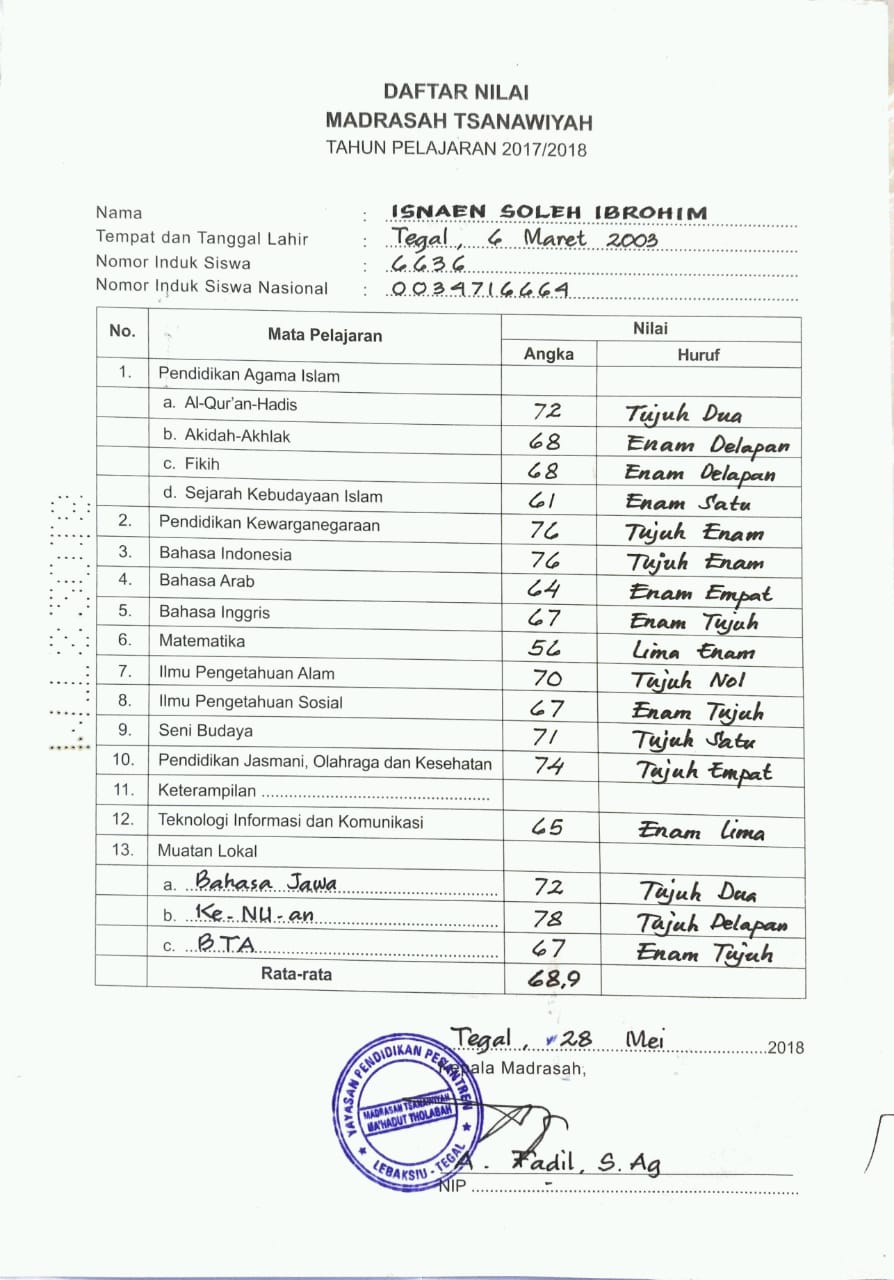 DAFTAR NILAI
MADRASAH TSANAWIYAH
TAHUN PELAJARAN 2017/2018
Nama : ISNAEN SOLEH IBROHIM
Tempat dan Tanggal Lahir : Tegal, 6 Maret 2003
Nomor Induk Siswa : 6636
Nomor Induk Siswa Nasional : 0034716664
No. Mata Pelajaran Nilai
Angka Huruf
1. Pendidikan Agama Islam
a. Al-Qur'an-Hadis 72 Tujuh Dua
b. Akidah-Akhlak 68 Enam Delapan
c. Fikih 68 Enam Delapan
d. Sejarah Kebudayaan Islam 61 Enam Satu
2. Pendidikan Kewarganegaraan 76 Tujuh Enam
3. Bahasa Indonesia 76 Tujuh Enam
4. Bahasa Arab 64 Enam Empat
5. Bahasa Inggris 67 Enam Tujuh
6. Matematika 56 Lima Enam
7. Ilmu Pengetahuan Alam 70 Tujuh Nol
8. Ilmu Pengetahuan Sosial 67 Enam Tujuh
9. Seni Budaya 71 Tujuh Satu
10. Pendidikan Jasmani, Olahraga dan Kesehatan 74 Tujuh Empat
11. Keterampilan ............
12. Teknologi Informasi dan Komunikasi 65 Enam Lima
13. Muatan Lokal
a. Bahasa Jawa 72 Tujuh Dua
b. Ke-NU-an 78 Tujuh Delapan
c. BTA 67 Enam Tujuh
Rata-rata 68,9
Tegal, 28 Mei 2018
Kepala Madrasah,
YAYASAN PENDIDIKAN PESANTREN
MADRASAH TSANAWIYAH
MA'HADUT THOLABAH
LEBAKSIU - TEGAL
A. Fadil, S.Ag
NIP ............ -